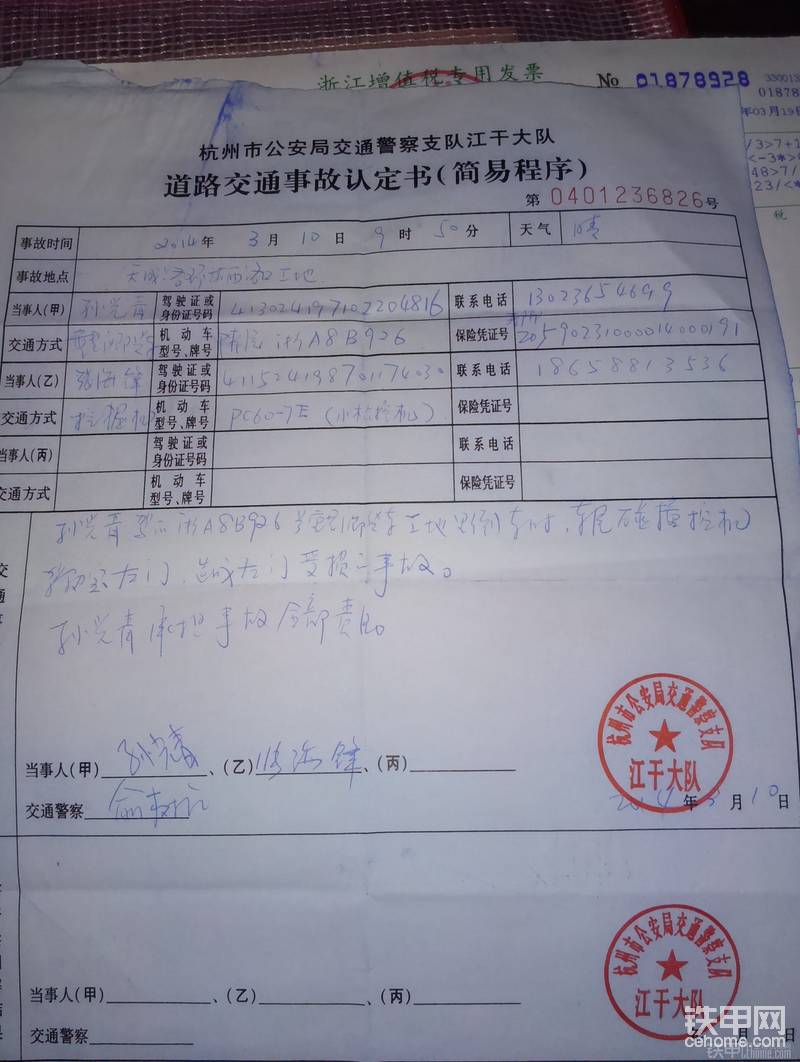 浙江增值税专用发票 No 01878928
杭州市公安局交通警察支队江干大队
道路交通事故认定书(简易程序)
第 0401236826号
事故时间 2014年 3月 10日 9时 50分 天气 晴
事故地点 工地
当事人(甲) 孙光青 驾驶证或身份证号码 413024197102204816 联系电话 13023654699
交通方式 机动车型号、牌号 浙A8B926 保险凭证号 20590231000014000191
当事人(乙) 张海锋 驾驶证或身份证号码 411524198701174030 联系电话 18658813536
交通方式 挖掘机 机动车型号、牌号 PC60-7E (小松挖机) 保险凭证号
当事人(丙) 驾驶证或身份证号码 联系电话
交通方式 机动车型号、牌号 保险凭证号
孙光青 浙A8B926 工地 倒车时,车尾碰撞挖机
右门,造成右门受损之事故。
孙光青承担事故全部责任。
当事人(甲) 孙光青、(乙) 张海锋、(丙)
交通警察
2014年3月10日
杭州市公安局交通警察支队
江干大队
当事人(甲)、(乙)、(丙)
交通警察
年 月 日
杭州市公安局交通警察支队
江干大队
铁甲网
cehome.com